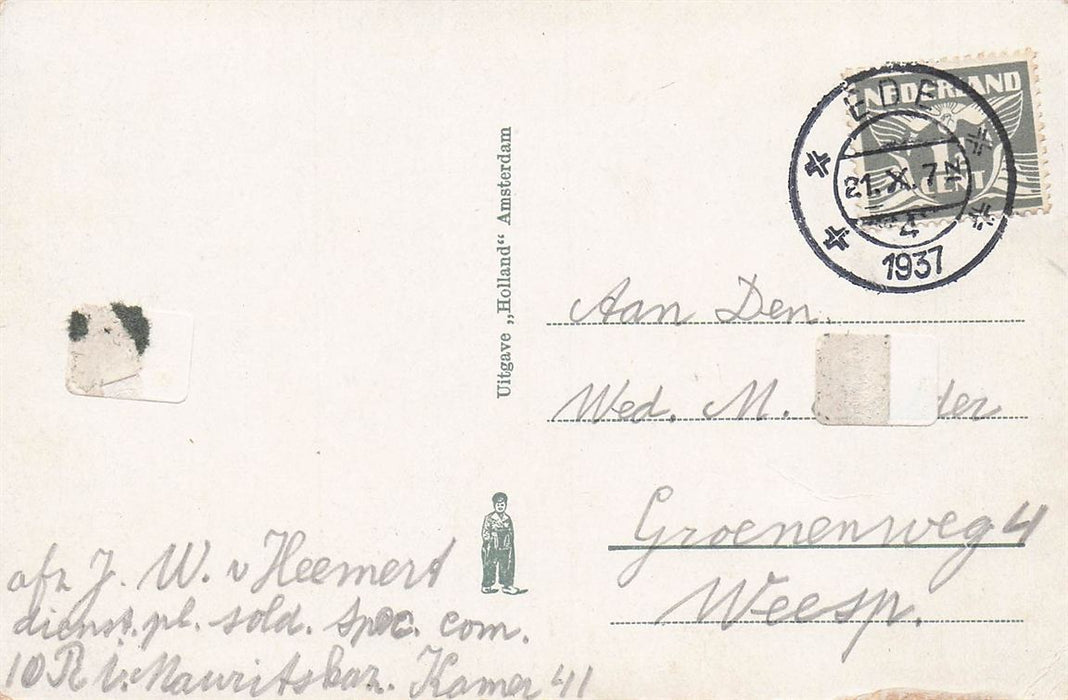 NEDERLAND
CENT
EDE
21.X.7 N
4
1937
Uitgave „Holland“ Amsterdam
Aan Den.
Wed. M. der
Groenenweg 4
Weesp.
afz J. W. v Heemert
dienst.pl. sold. spec. com.
10 R I. Mauritskaz. Kamer 41